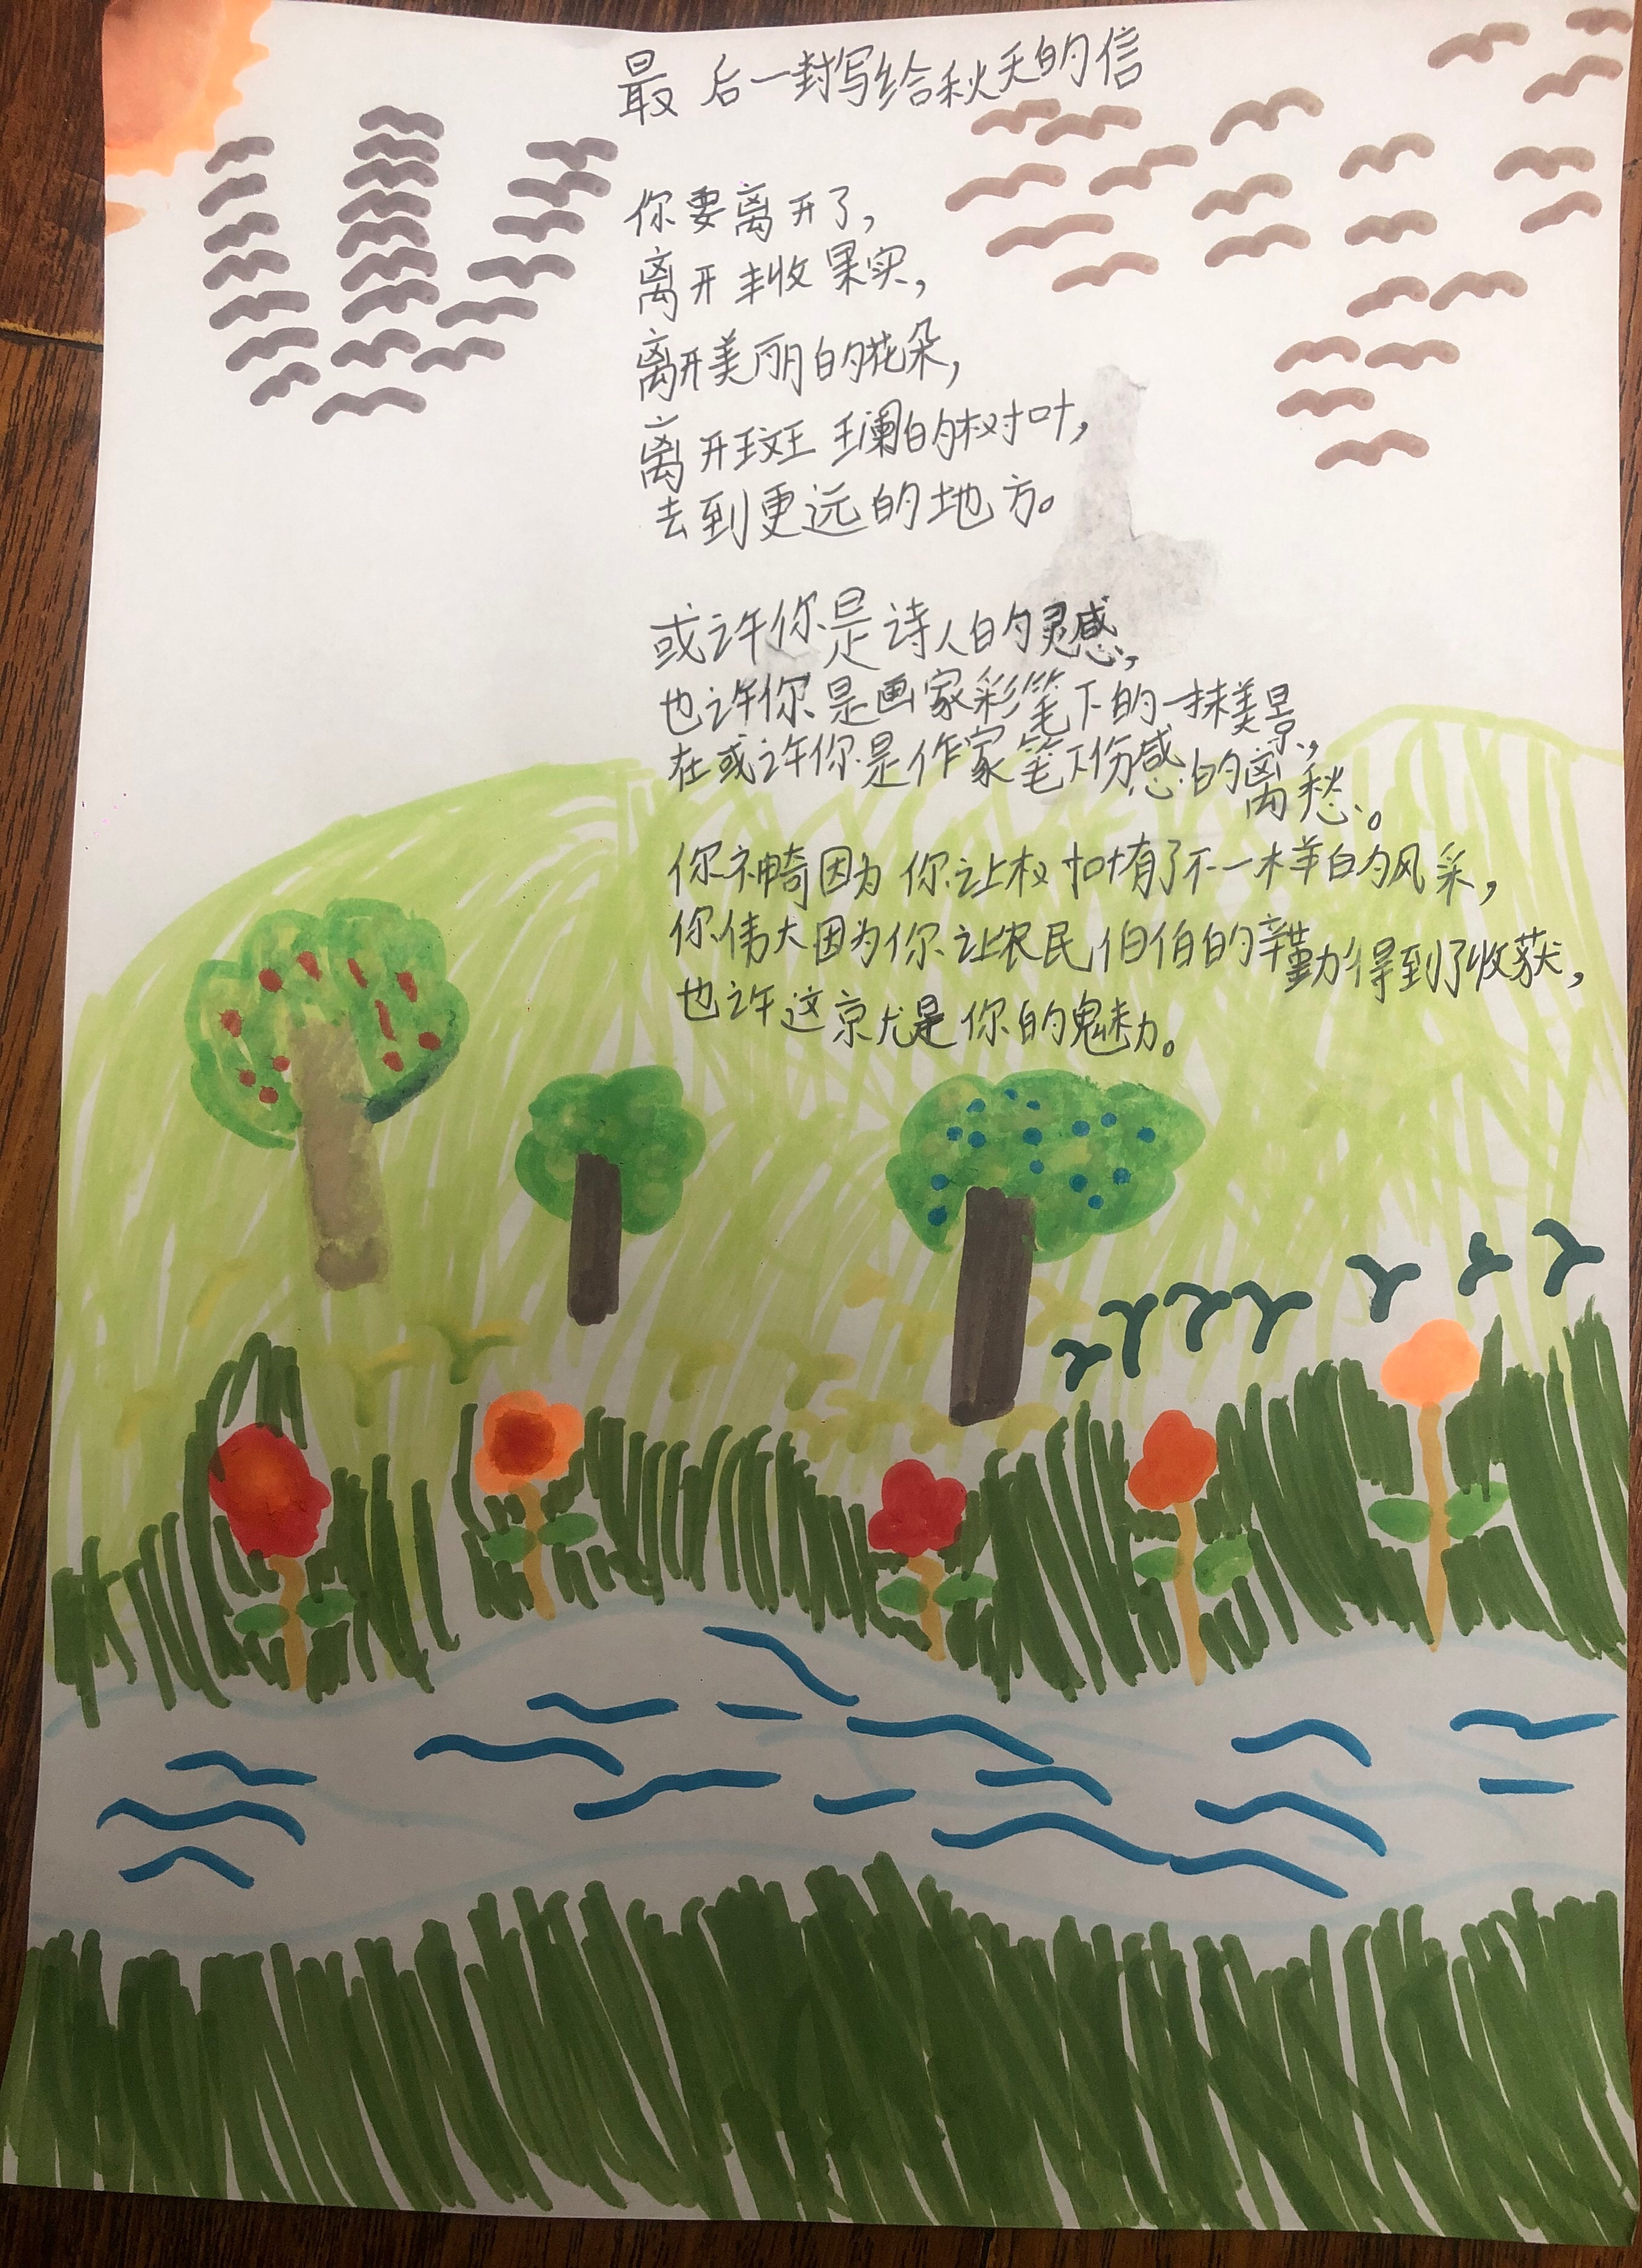 最后一封写给秋天的信
你要离开了，
离开丰收果实，
离开美丽的花朵，
离开斑斓的树叶，
去到更远的地方。
或许你是诗人的灵感，
也许你是画家彩笔下的一抹美景，
在或许你是作家笔下伤感的离愁。
你神奇因为你让树叶有了不一样的风采，
你伟大因为你让农民伯伯的辛勤得到了收获，
也许这就是你的魅力。